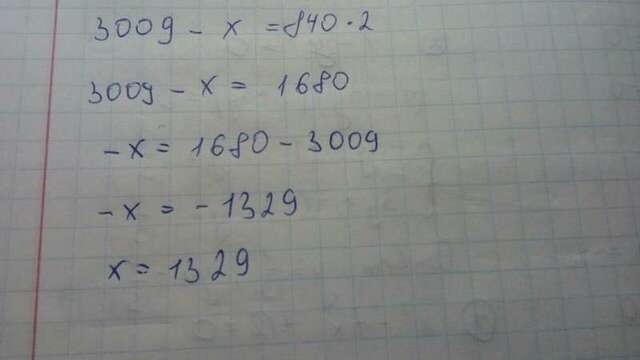 3009 - x = 840 · 2
3009 - x = 1680
-x = 1680 - 3009
-x = -1329
x = 1329